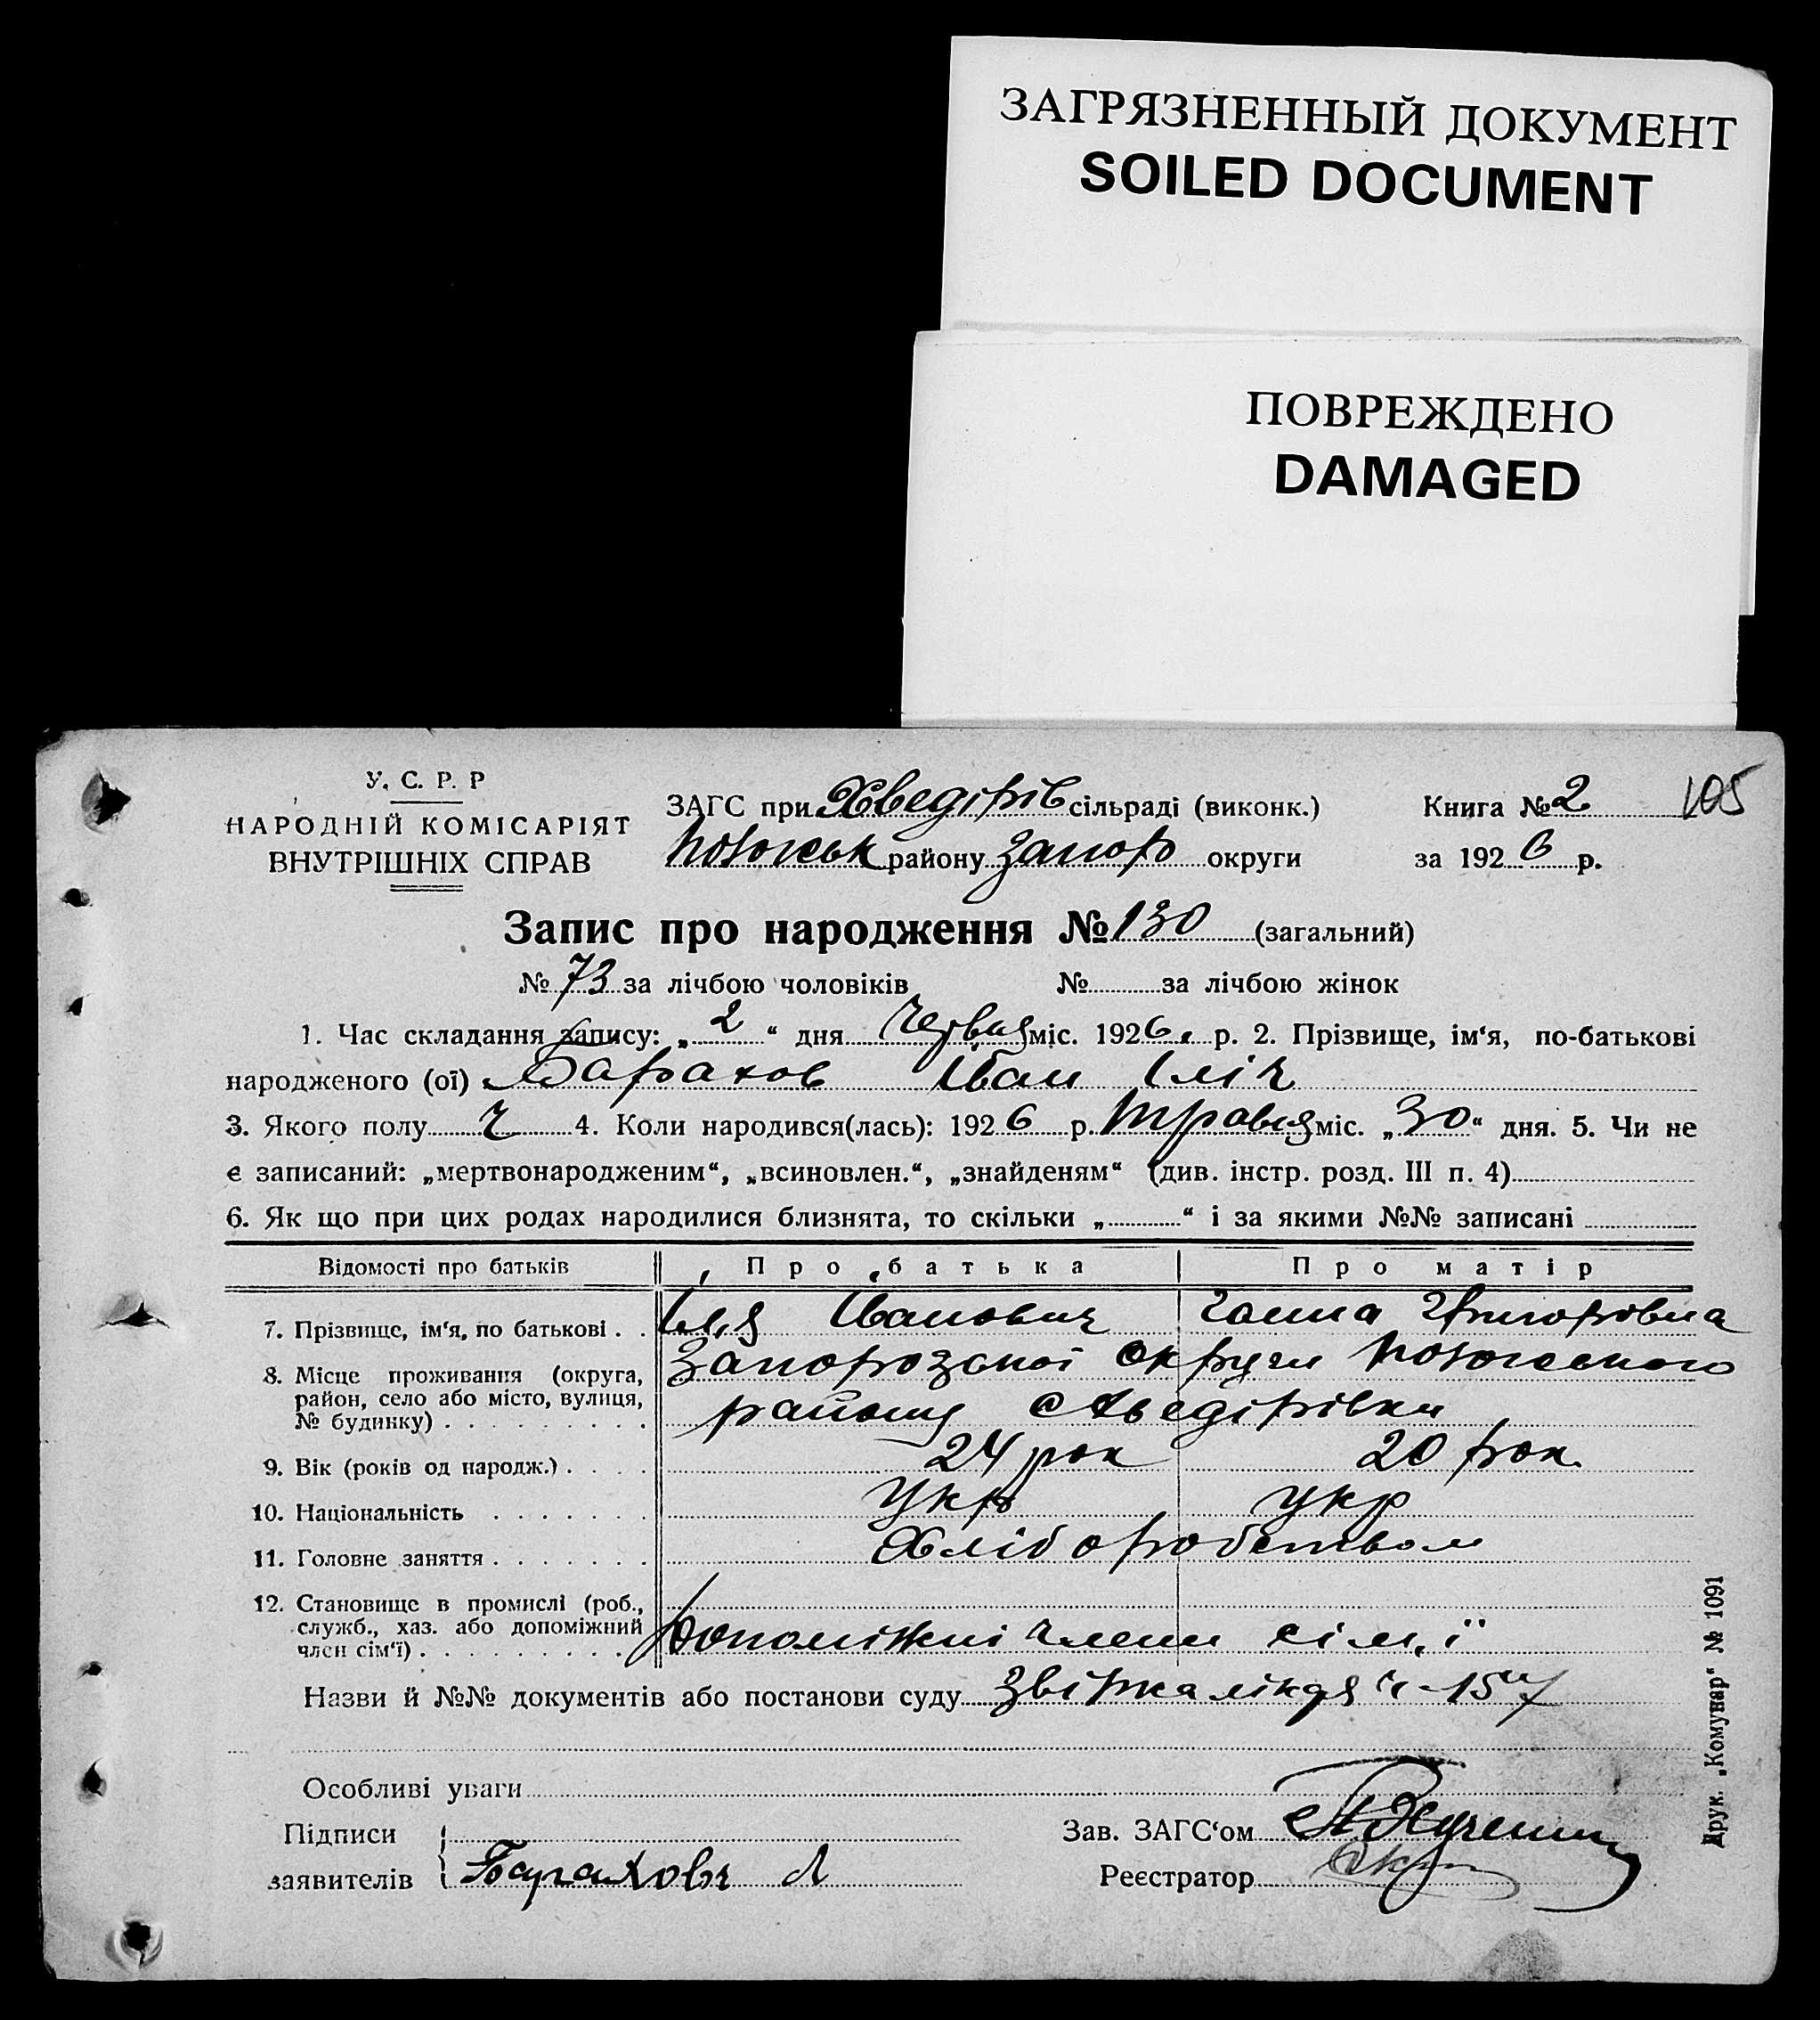 ЗАГРЯЗНЕННЫЙ ДОКУМЕНТ
SOILED DOCUMENT
ПОВРЕЖДЕНО
DAMAGED
У. С. Р. Р
НАРОДНІЙ КОМІСАРІЯТ
ВНУТРІШНІХ СПРАВ
ЗАГС при Хведірів сільраді (виконк.) Книга № 2 105
району Запор округи за 1926 р.
Запис про народження № 130 (загальний)
№ 73 за лічбою чоловіків № за лічбою жінок
1. Час складання запису: „2“ дня Червня міс. 1926. р. 2. Прізвище, ім‘я, по-батькові
народженого (ої) Барахов Іван Іліч
3. Якого полу ч 4. Коли народився(лась): 1926 р. Травня міс. „30“ дня. 5. Чи не
є записаний: „мертвонародженим“, „всиновлен.“, „знайденям“ (див. інстр. розд. III п. 4)
6. Як що при цих родах народилися близнята, то скільки „ “ і за якими №№ записані
Відомості про батьків Про батька Про матір
7. Прізвище, ім‘я, по батькові . . Іля Іванович Ганна Григоровна
8. Місце проживання (округа, Запорозської округи
район, село або місто, вулиця,
№ будинку) . . . . . . . . . району с Хведірівки
9. Вік (років од народж.) . . . . 24 рок 20 рок.
10. Національність . . . . . . . укр укр
11. Головне заняття . . . . . . . Хліборобством
12. Становище в промислі (роб.,
служб., хаз. або допоміжний
член сім‘ї) . . . . . . . . . Допоміжні члени сім,ї
Назви й №№ документів або постанови суду
Особливі уваги
Підписи Зав. ЗАГС‘ом
заявителів Бараховъ Реєстратор
Друк. „Комунар“ № 1091